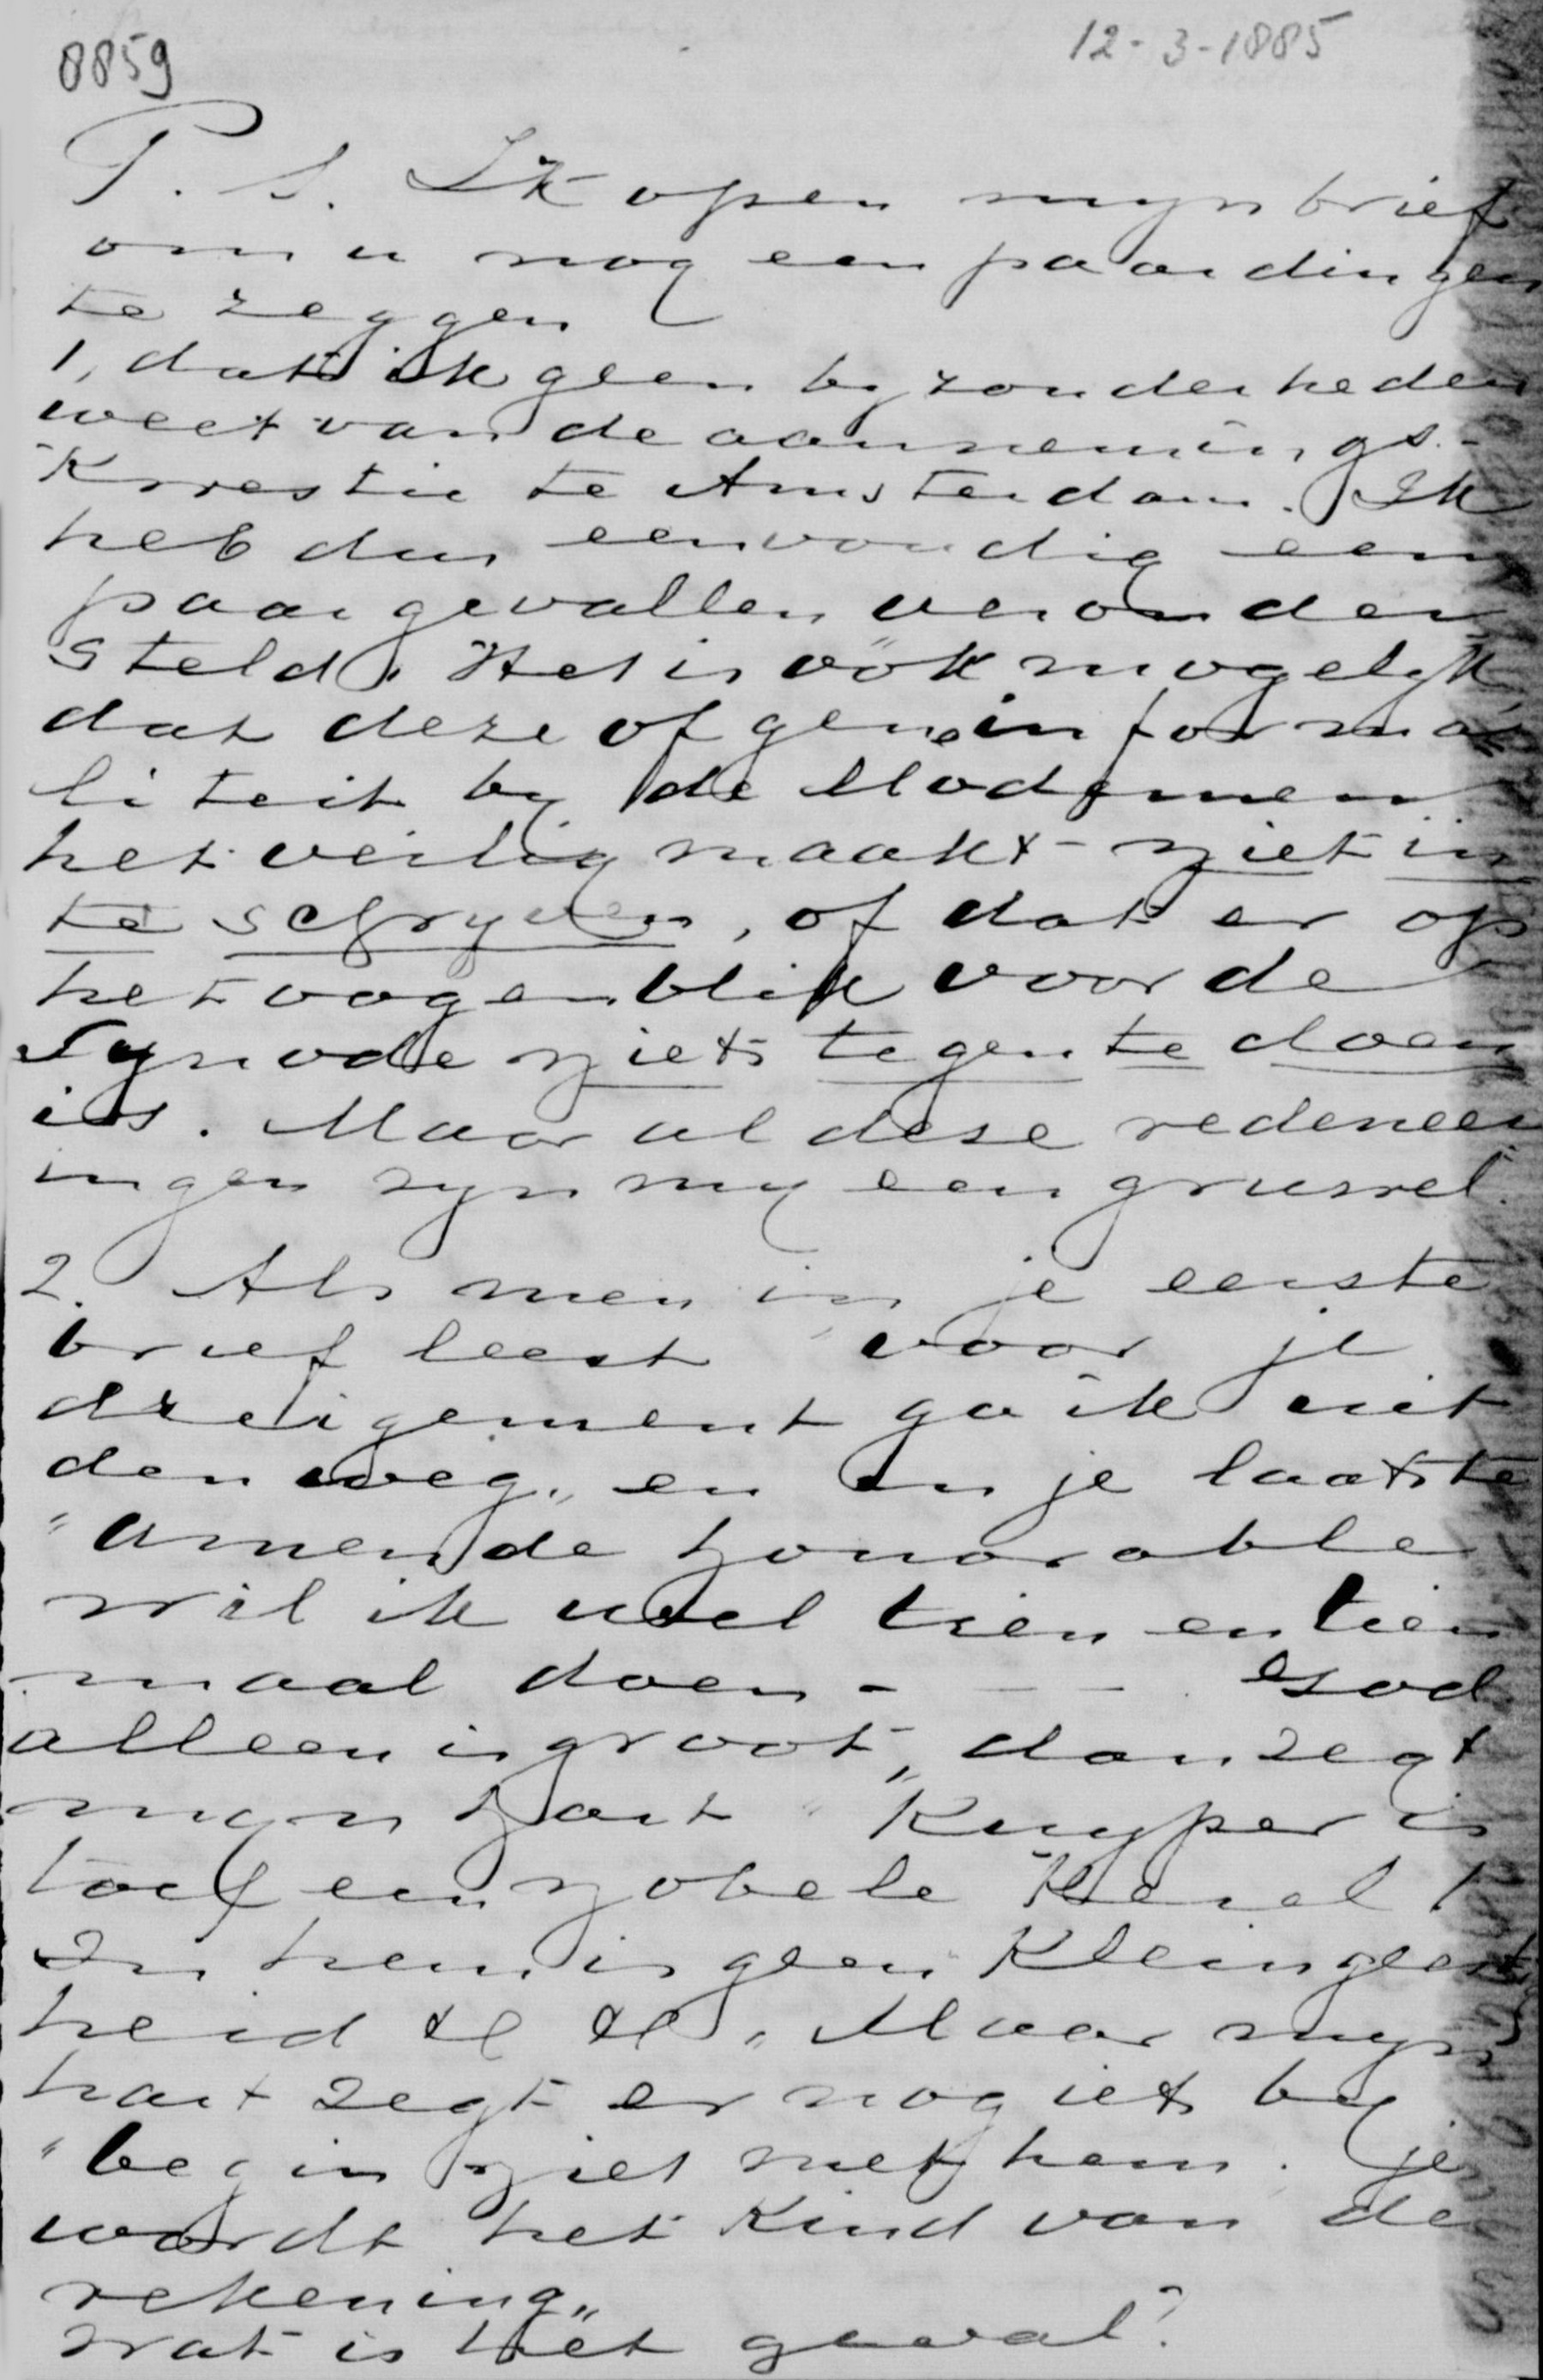 8859
12-3-1885
P. S. Ik open mijn brief
om u nog een paar dingen
te zeggen
1, dat ik geen byzonderheden
weet van de aannemings-
Kwestie te Amsterdam. Ik
heb dus eenvoudig een
paar gevallen veronder
steld. Het is óók mogelyk
dat deze of gene informa
liteit by de Modernen
het veilig maakt niet in
te schryven, of dat er op
het oogenblik voor de
Synode niets tegen te doen
is. Maar al deze redeneer
ingen zyn my een gruwel.
2. Als men in je eerste
brief leest "voor je
dreigement ga ik uit
den weg" en in je laatste
"amende honorable
wil ik wel tien en tien
maal doen - - - . God
alleen is groot", dan zegt
myn hart "Kuyper is
toch een nobele Kerel!
In hem is geen Kleingeest
heid &c &c". Maar myn
hart zegt er nog iets by
"begin niet met hem. je
wordt het Kind van de
rekening"
Wat is het geval?